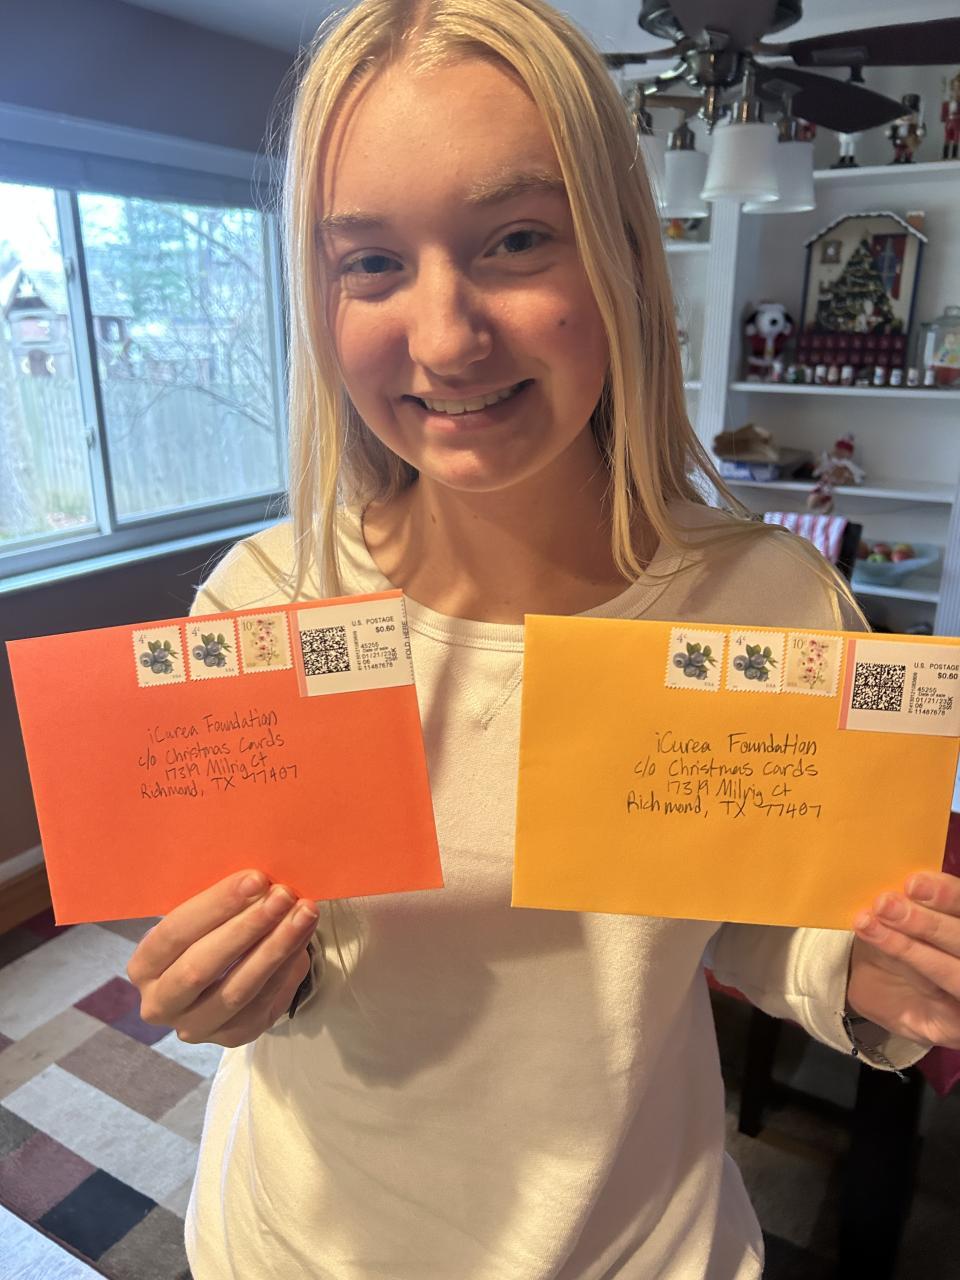 4¢
USA
4¢
USA
10¢
U.S. POSTAGE
$0.60
45255
Date of sale
01/21/23
06 2S
11487678
iCurea Foundation
c/o Christmas Cards
17319 Milrig Ct
Richmond, TX 77407
4¢
USA
4¢
USA
10¢
U.S. POSTAGE
$0.60
45255
Date of sale
01/21/23
06 2S
11487678
iCurea Foundation
c/o Christmas Cards
17319 Milrig Ct
Richmond, TX 77407